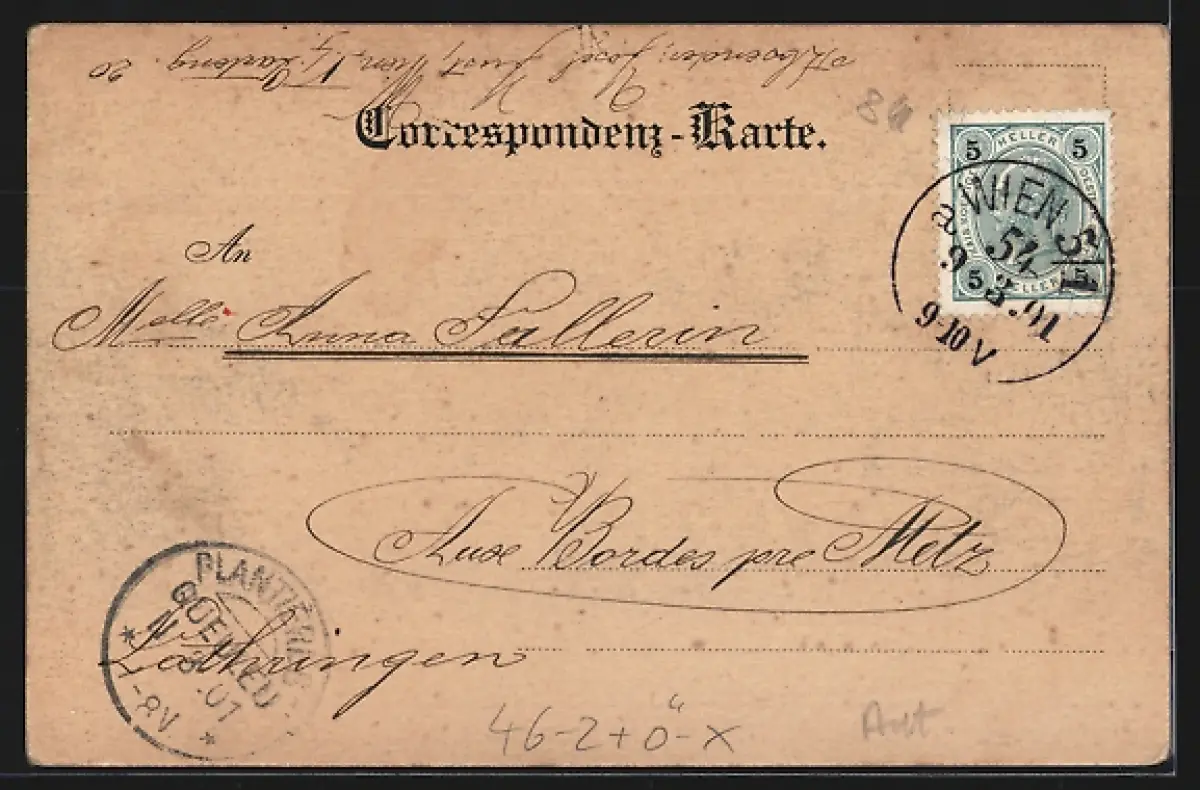 Absender: Josef Just, Wien. V/1 20
Correspondenz-Karte.
84
5 HELLER 5
5 HELLER 5
WIEN 5/1
a 54
9 3 01
9-10 V
An
Melle Anna Fallerin
Aux Bordes pre Metz
Lothringen
PLANTIÈRES-
QUEULEU
01
-8V
46-2+Ö-X